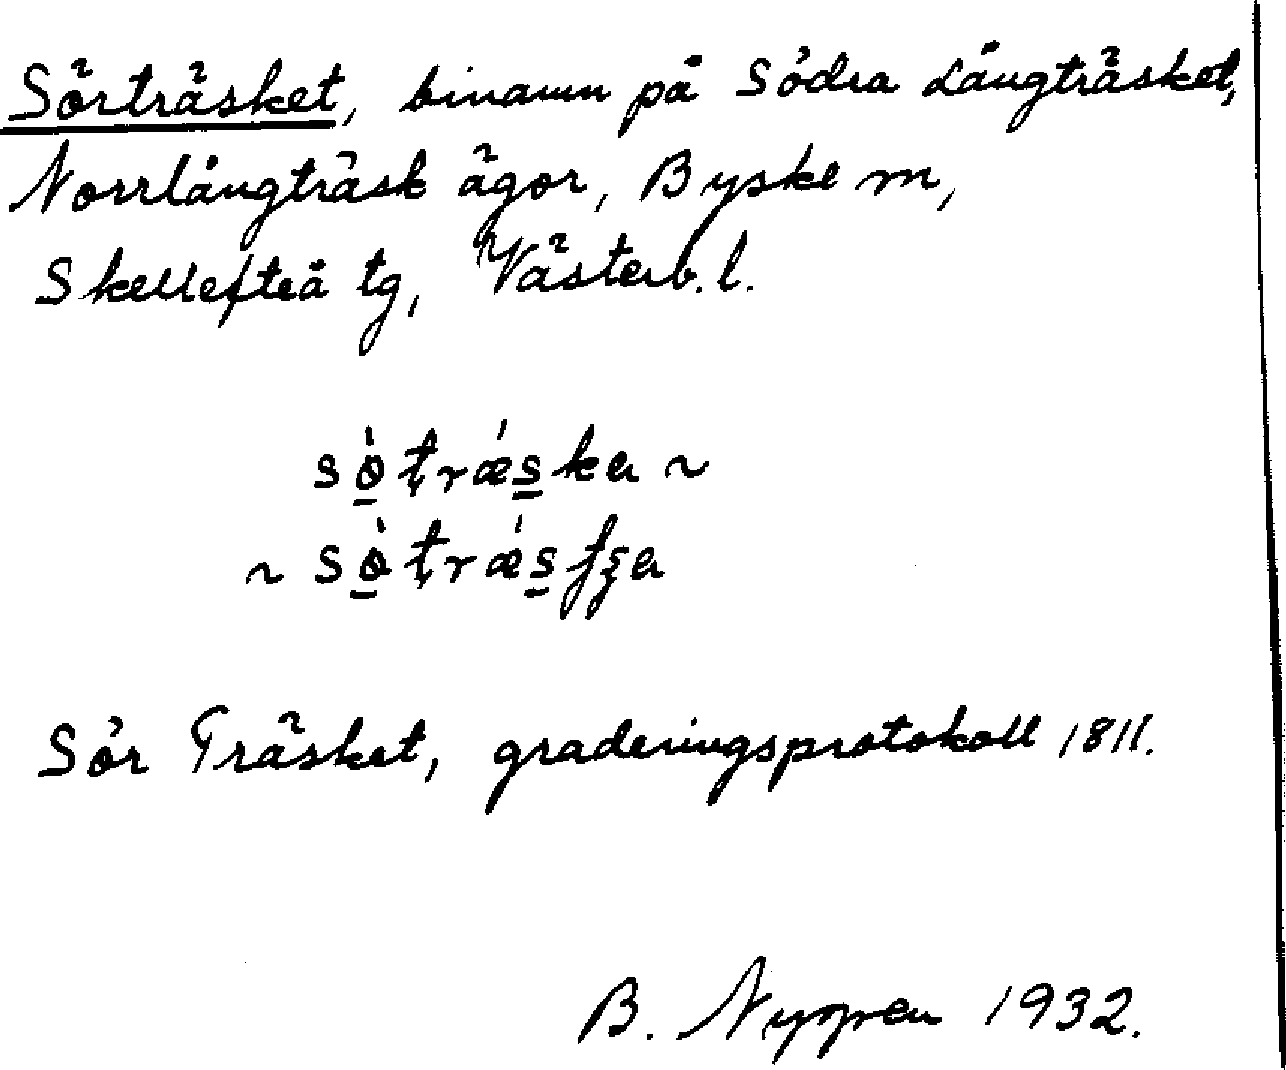 Sörträsket, binamn på Södra Långträsket,
Norrlångträsk ägor, Byske sn,
Skellefteå tg, Västerb. l.
sø̱̀ṭrǽs̱ka ~
~ sø̱̀ṭrǽs̱ʄʒa
Sör Träsket, graderingsprotokoll 1811.
B. Nygren 1932.